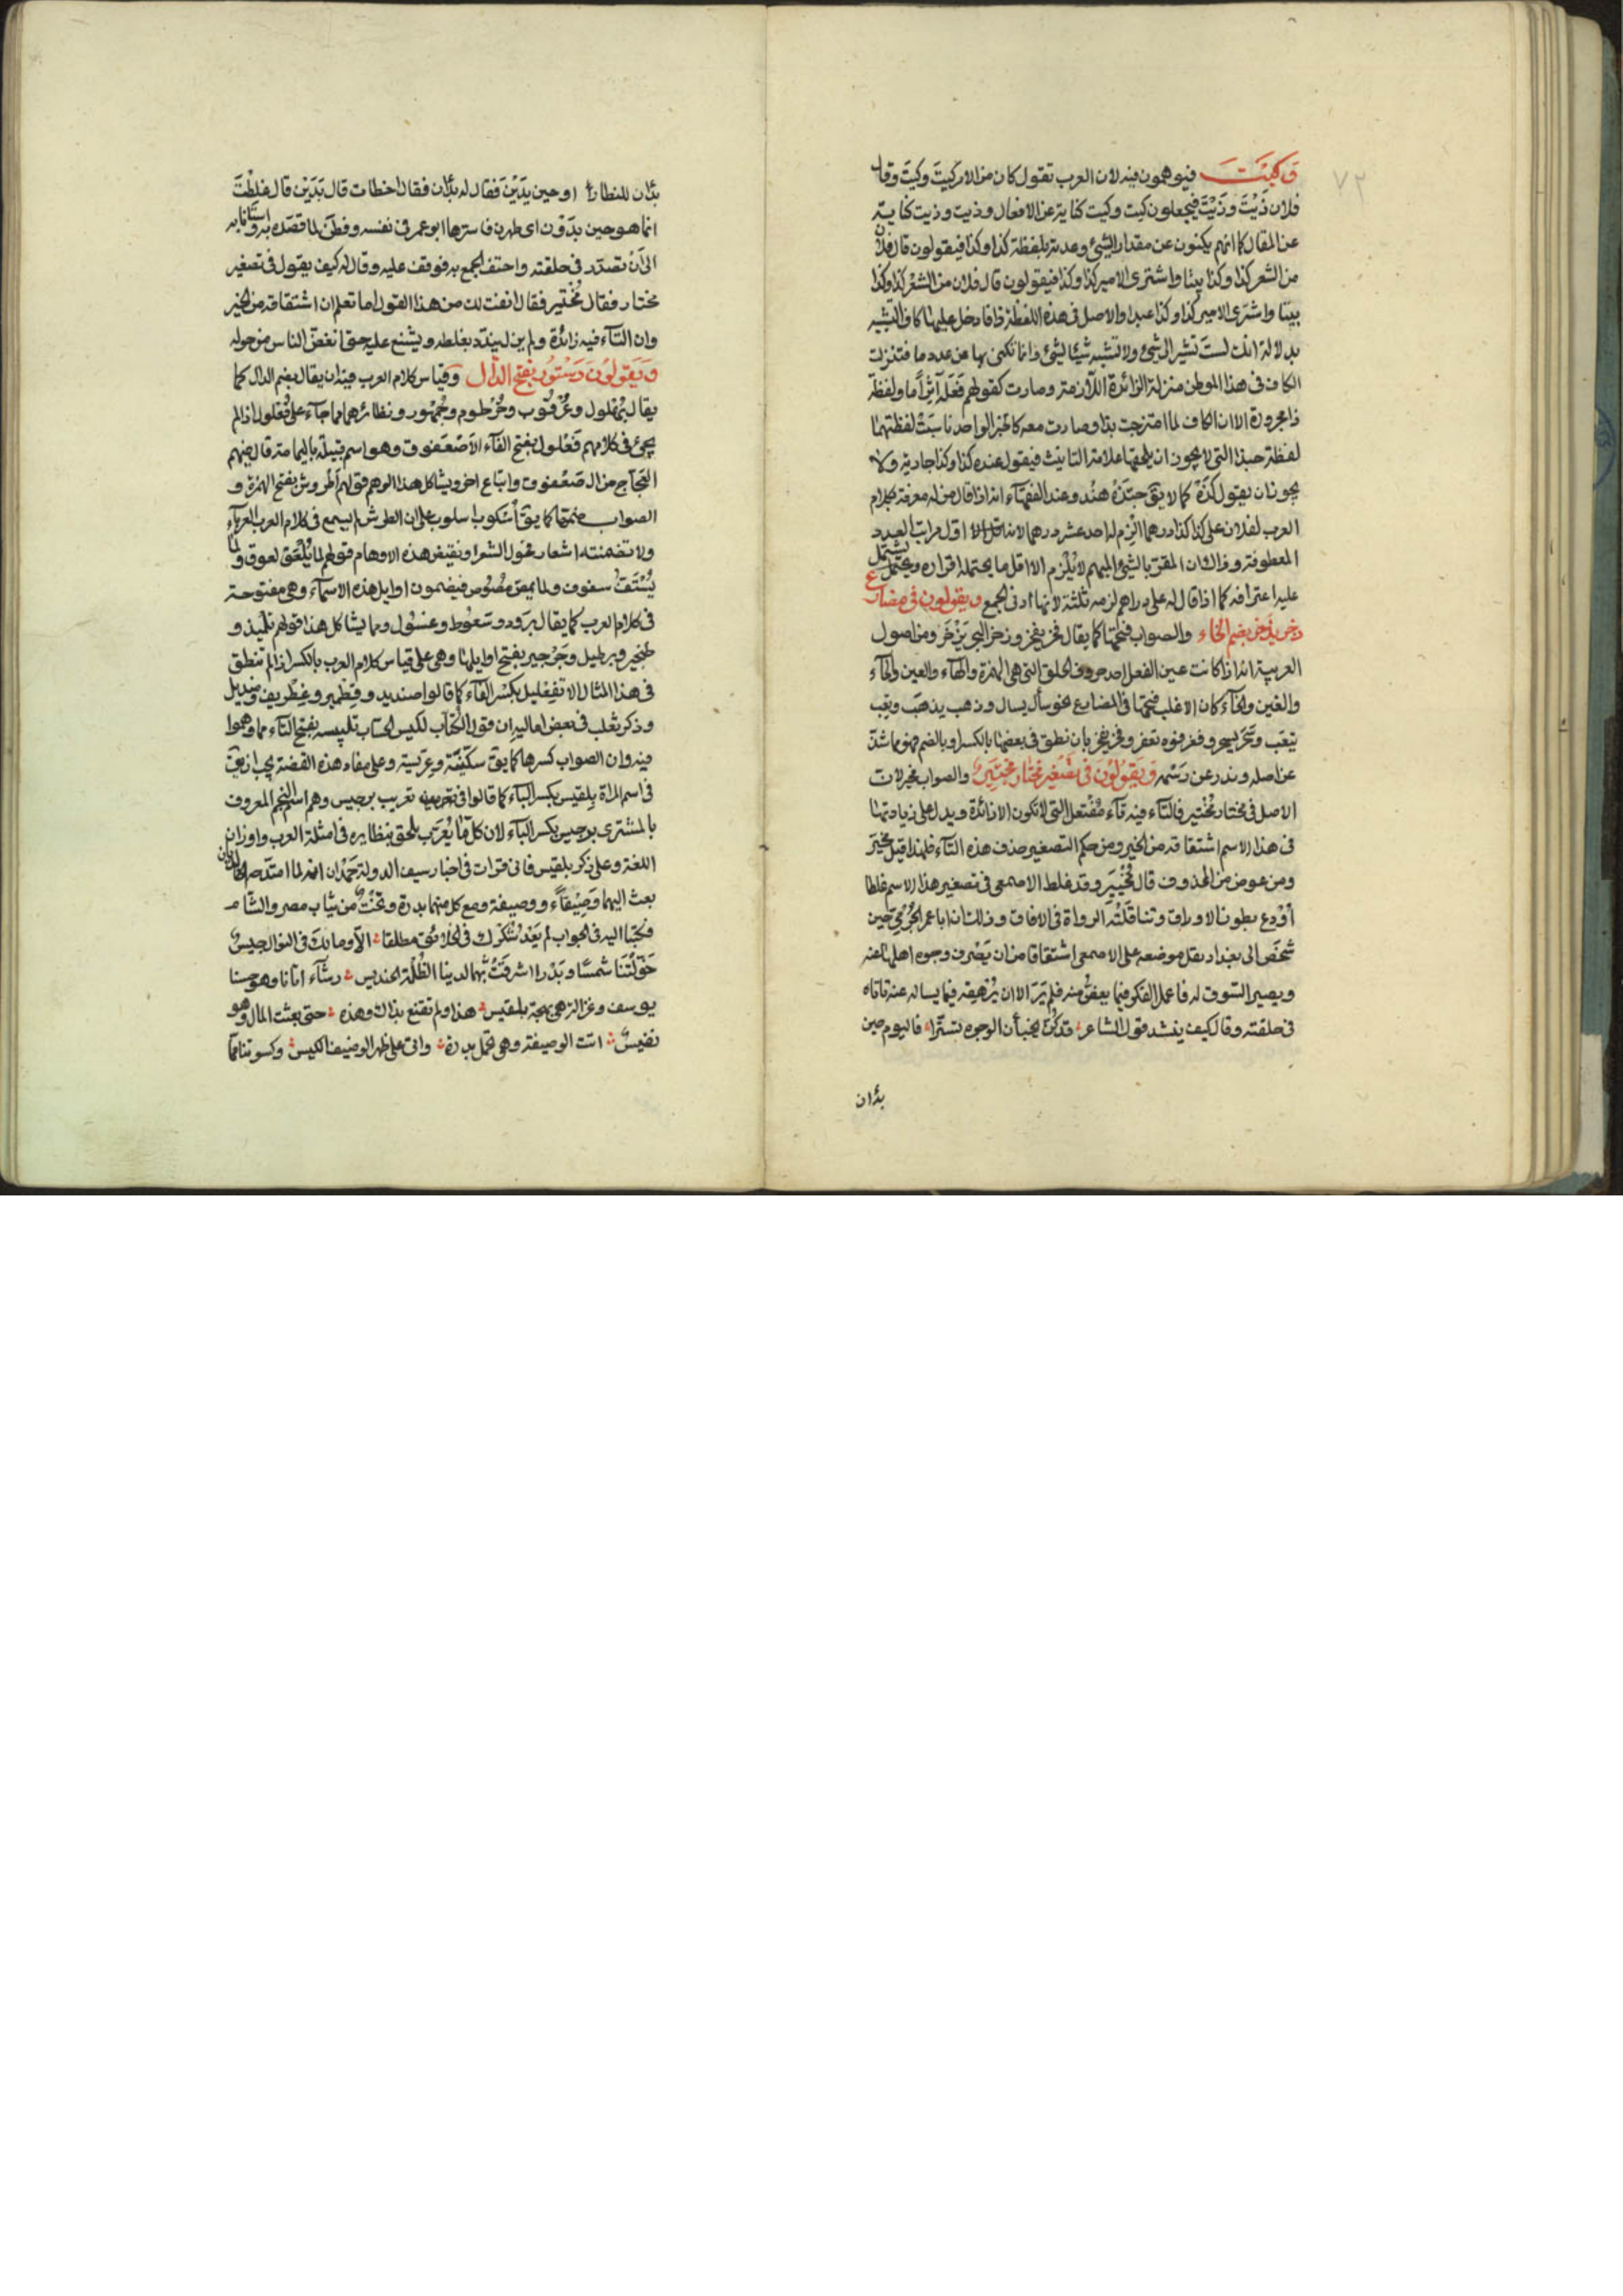 ٧٢
وكيت فيوهمون فيه لان العرب تقول كان من الامر كيت وكيت وقال
فلان ذَيْتَ وذَيْتَ فيجعلون كيت وكيت كناية عن الافعال وذيت وذيت كناية
عن المقال كما انهم يكنون عن مقدار الشئ وعدته بلفظة كذا وكذا فيقولون قال فلان
من الشعر كذا وكذا بيتا واشترى الامير كذا وكذا فيقولون قال فلان من الشعر كذا وكذا
بيتا واشترى الامير كذا وكذا عبدا والاصل فى هذه اللفظة ذا فادخل عليها كاف التشبيه
بدلالة انك لست تشير الى شئ ولا تشبه شيئا لشئ وانما تكنى بها عن عدد ما فتنزلت
الكاف فى هذا الموطن منزلة الزائدة اللازمة وصارت كقولهم فَعَلَه آثِراً ما ولفظة
ذا مجرورة الا ان الكاف لما امتزجت بذا وصارت معه كالجزء الواحد ناسبَتْ لفظتهما
لفظة حبذا التى لا يجوز ان يلحقها علامة التانيث فيقول عنده كذا وكذا جارية ولا
يجوز ان يقول كَذَه كما لا يق حبذه هند وعند الفقهاء انه اذا قال من له معرفة بكلام
العرب لفلان على كذا كذا درهما الزم له احد عشر درهما لانه اقل الا اول مراتب العدد
المعطوفة وذاك ان المقرّ بالشئ المبهم لا يُلْزم الا اقل ما يحتمله اقراره ويشتمل
عليه اعترافه كما اذا قال له على دراهم لزمه ثلثة لانها ادنى الجمع ويقولون فى مضارع
ذخر يذخر بضم الخاء والصواب فتحها كما يقال فخر يفخر وزخر البحر يَزْخَر ومن اصول
العربية انه اذا كانت عين الفعل احد حروف الحلق التى هى الهمزة والهاء والعين والحاء
والغين والخاء كان الاغلب فتحها فى المضارع نحو سأل يسال وذهب يذهب وتعِب
يتعَب وسَحَر يسحر وفغر فوه يفغر وفخر يفخر فان نطق فى بعضها بالكسر او بالضم فهو مما شذّ
عن اصله وندر عن رَسْمه وَيَقولُونَ فى تصغير مختار مخيتير والصواب مخير لان
الاصل فى مختار مُخْتَير فالتاء فيه تاء مُفْتعل التى لا تكون الا زائدة ويدل على زيادتها
فى هذا الاسم اشتقاقه من الخير ومن حكم التصغير حذف هذه التاء فلهذا قيل مخَيّر
ومن عوض من المحذوف قال مُخَيّير وقد غلط الاصمعى فى تصغير هذا الاسم غلطا
اُوْدِع بطون الاوراق وتناقَلَتْه الرواة فى الافاق وذلك ان ابا عمر الجَرْمىّ حين
شخَص الى بغداد ثقل موضعه على الاصمعى اشتقاقا من ان يَصْرِف وجوه اهلها عنه
ويصير السّوق له فاعمل الفكر فيما يغضّ منه فلم يَرَ الا ان يُرْهِقه فيما يساله عنه فاتاه
فى حلقته وقال كيف ينشد قول الشاعر قد كُنّ يخبأن الوجوه تستّرا فاليوم حين
بدأن
بدأن للنظار او حين بدَيْن فقال له بدأن فقال اخطات قال بَدَيْن قال غلِطْتَ
انما هو حين بدَوْن اى ظهرن فاسترها ابو عمر فى نفسه وفطن لما قصَده به واستانا به
الى اَن تصدّر فى حلقته واحتف الجمع به فوقف عليه وقال له كيف يقول فى تصغير
مختار فقال مُخَيْتير فقال انفت لك من هذا القول اما تعلم ان اشتقاقه من الخير
وان التاء فيه زائدة ولم يزل يندّد بغلطه ويشنع عليه حتى انفضّ الناس من حوله
وَيَقولُونَ دَستُور بفتح الدّال وقياس كلام العرب فيه ان يقال بضم الدال كما
يقال بُهْلول وعُرْقُوب وخُرْطوم وجُمْهور ونظائرها مما جاء على فُعْلول اذ لم
يجئ فى كلامهم فَعْلول بفتح الفاء الا صَعْفوق وهو اسم قبيلة باليمامة قال فيهم
العجاج من آل صَعْفوق واتباع اخر ويشاكل هذا الوهم قولهم اَطروش بفتح الهمزة و
الصواب ضمّها كما يق اُسْكوب اسلوب على ان الطرش لم يسمع فى كلام العرب العرباء
ولا تضمنته اشعار فحول الشعراء ونقيض هذه الاوهام قولهم لما يُلْعَق لعوق ولما
يُسْتَفّ سفوف ولما يمصّ مصُوص فيضمون اوايل هذه الاسماء وهى مفتوحة
فى كلام العرب كما يقال بَرود وسَعُوط وغَسُول ومما يشاكل هذا قولهم تلميذ و
طنجير وبرطيل وجَرْجير بفتح اوايلها وهى على قياس كلام العرب بالكسر اذ لم تنطق
فى هذا المثال الا بفِعْليل بكسر الفاء كما قالوا صنديد وقِطمير وغِطْريف ومنديل
وذكر ثعلب فى بعض اماليه ان قول الكتاب لكيس الحساب تليسة بفتح التاء مما وهموا
فيه وان الصواب كسرها كما يق سكّينة وعِرّيسة وعلى مفاد هذه القضية يجب ان يق
فى اسم المراة بِلقيس بكسر الباء كما قالوا فى تعريب برجيس وهم اسم النجم المعروف
بالمشترى برجيس بكسر الباء لان كل ما يُعَرّب يلحق بنظايره فى امثلة العرب واوزان
اللغة وعلى ذكر بلقيس فانى قرات فى اخبار سيف الدولة حَمْدان انه لما امتدحه الخالديان
بعث اليهما وَصِيْفاً ووصيفة ومع كل منهما بدرة وتختٌ من ثياب مصر والشام
فكتبا اليه فى الجواب لم يَغْد شُكْرك فى الخلائق مطلقا الّا ومالك فى النوال حبيسُ
خَوّلْتَنا شمسًا وبَدْرا اشرقَتْ بهما لدينا الظُلْمَة الحنديس رشاء اتانا وهو حسنا
يوسف وغزالة هى بهجة بلقيس هذا ولم تقنع بذاك وهذه حتى بعثت المال وهو
نفيسُ اتت الوصيفة وهى تحمل بدرة واتى على ظهر الوصيف الكيس وكسوتنا مما